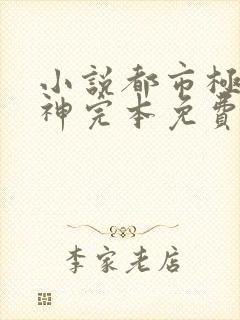 小説都市極
神完本免費
李家老店